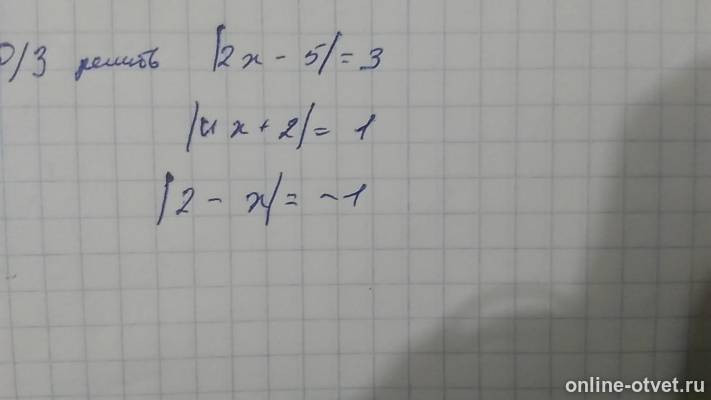 Д/З решить |2x - 5| = 3
|4x + 2| = 1
|2 - x| = -1
online-otvet.ru